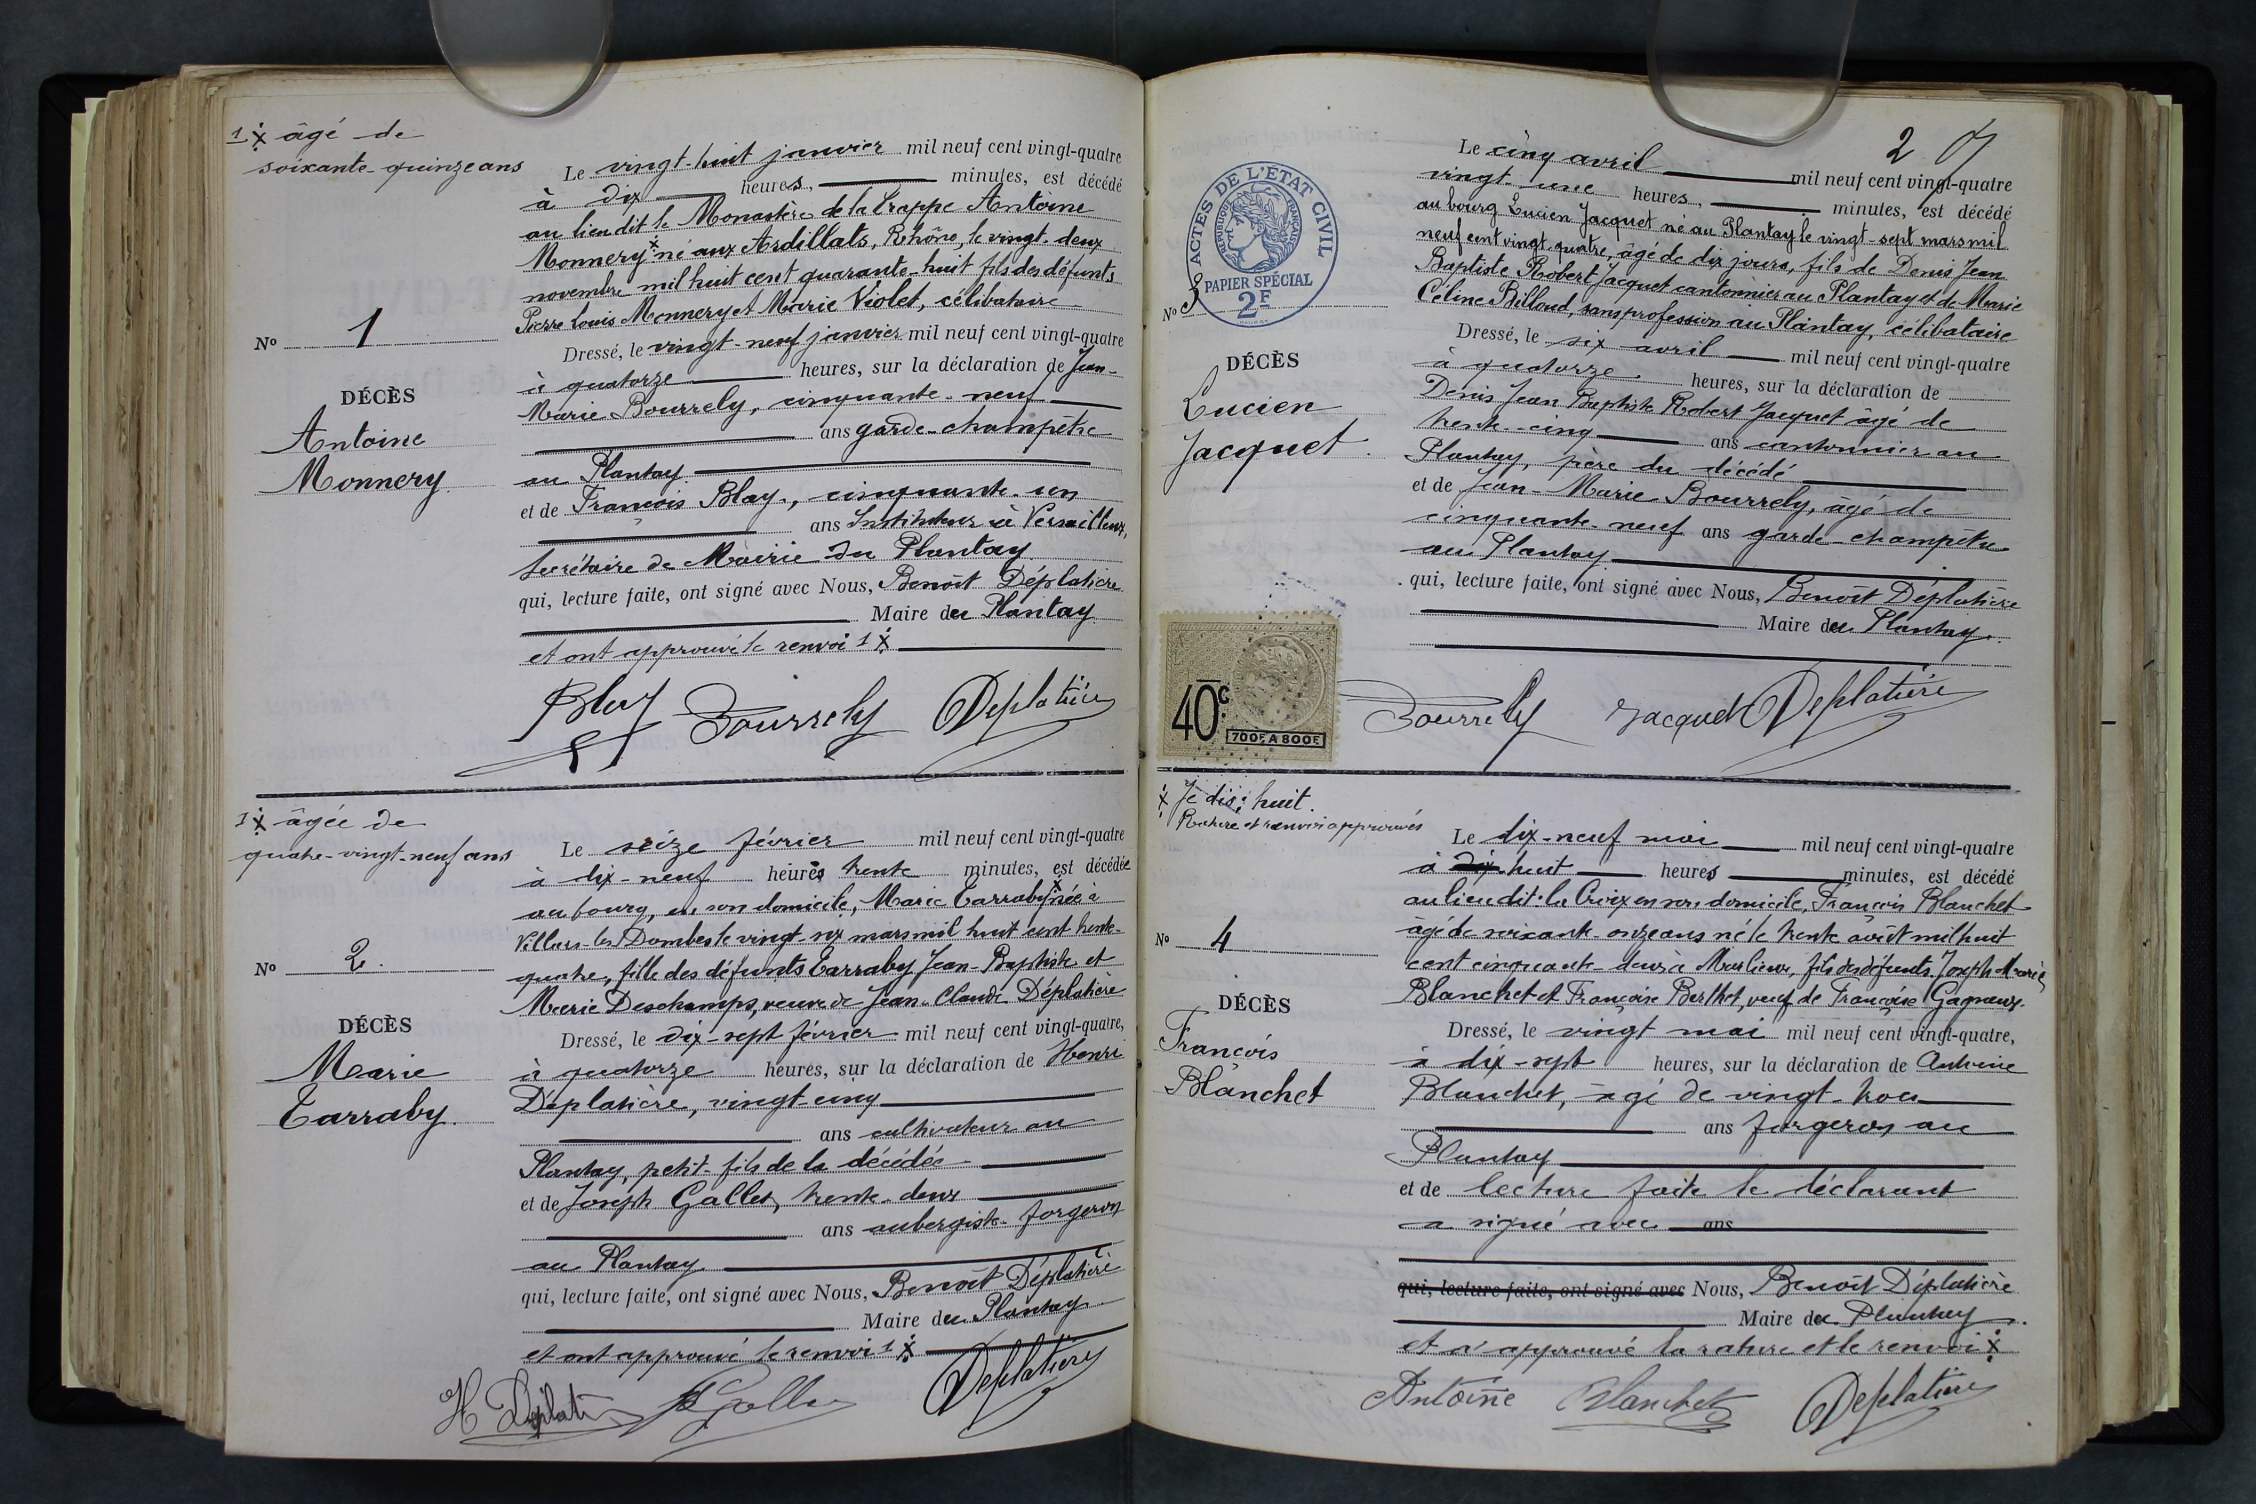 1 x âgé de
soixante-quinze ans
Le vingt-huit janvier mil neuf cent vingt-quatre
à dix heures, minutes, est décédé
au lieu dit le Monastère de la Trappe Antoine
Monnery x né aux Ardillats, Rhône, le vingt-deux
novembre mil huit cent quarante-huit fils des défunts
Pierre Louis Monnery et Marie Violet, célibataire
No 1
Dressé, le vingt-neuf janvier mil neuf cent vingt-quatre
à quatorze heures, sur la déclaration de Jean-
DÉCÈS
Marie Bourrely, cinquante-neuf
Antoine
ans garde-champêtre
Monnery
au Plantay
et de François Blay, cinquante-un
ans Instituteur à Versailleux,
secrétaire de Mairie du Plantay
qui, lecture faite, ont signé avec Nous, Benoît Déplatière
Maire du Plantay
et ont approuvé le renvoi 1 x
Blay Bourrely Deplatière
1 x âgée de
quatre-vingt-neuf ans
Le seize février mil neuf cent vingt-quatre
à dix-neuf heures trente minutes, est décédée
au bourg, en son domicile, Marie Tarraby x née à
Villars-les-Dombes le vingt-six mars mil huit cent trente-
quatre, fille des défunts Tarraby Jean-Baptiste et
No 2.
Marie Deschamps, veuve de Jean-Claude Déplatière
DÉCÈS
Dressé, le dix-sept février mil neuf cent vingt-quatre,
Marie
à quatorze heures, sur la déclaration de Henri
Tarraby.
Déplatière, vingt-cinq
ans cultivateur au
Plantay, petit-fils de la décédée
et de Joseph Gallet, trente-deux
ans aubergiste-forgeron
au Plantay
qui, lecture faite, ont signé avec Nous, Benoît Déplatière
Maire du Plantay
et ont approuvé le renvoi 1 x
H Déplati Deplatière
2
ACTES DE L'ÉTAT CIVIL
RÉPUBLIQUE FRANÇAISE
PAPIER SPÉCIAL
2F
Le cinq avril mil neuf cent vingt-quatre
vingt-une heures, minutes, est décédé
au bourg Lucien Jacquet né au Plantay le vingt-sept mars mil
neuf cent vingt-quatre, âgé de dix jours, fils de Denis Jean
Baptiste Robert Jacquet cantonnier au Plantay et de Marie
No 3
Céline Billoud, sans profession au Plantay, célibataire
Dressé, le six avril mil neuf cent vingt-quatre
DÉCÈS
à quatorze heures, sur la déclaration de
Lucien
Denis Jean Baptiste Robert Jacquet âgé de
Jacquet.
trente-cinq ans cantonnier au
Plantay, père du décédé
et de Jean-Marie Bourrely, âgé de
cinquante-neuf ans garde-champêtre
au Plantay
qui, lecture faite, ont signé avec Nous, Benoît Déplatière
Maire du Plantay.
40c
700F A 800F
Bourrely Jacquet Deplatière
x Je dis: huit.
Rature et renvoi approuvés
Le dix-neuf mai mil neuf cent vingt-quatre
à dix-huit heures minutes, est décédé
au lieu dit la Croix en son domicile, François Blanchet
âgé de soixante-onze ans né le trente août mil huit
No 4
cent cinquante-deux à Marlieux, fils des défunts Joseph Marie
Blanchet et Françoise Berthet, veuf de Françoise Gagneux.
DÉCÈS
Dressé, le vingt mai mil neuf cent vingt-quatre,
François
à dix-sept heures, sur la déclaration de Antoine
Blanchet
Blanchet, âgé de vingt-trois
ans forgeron au
Plantay
et de lecture faite le déclarant
a signé avec ans
qui, lecture faite, ont signé avec Nous, Benoît Déplatière
Maire du Plantay.
et a approuvé la rature et le renvoi x
Antoine Blanchet Deplatière